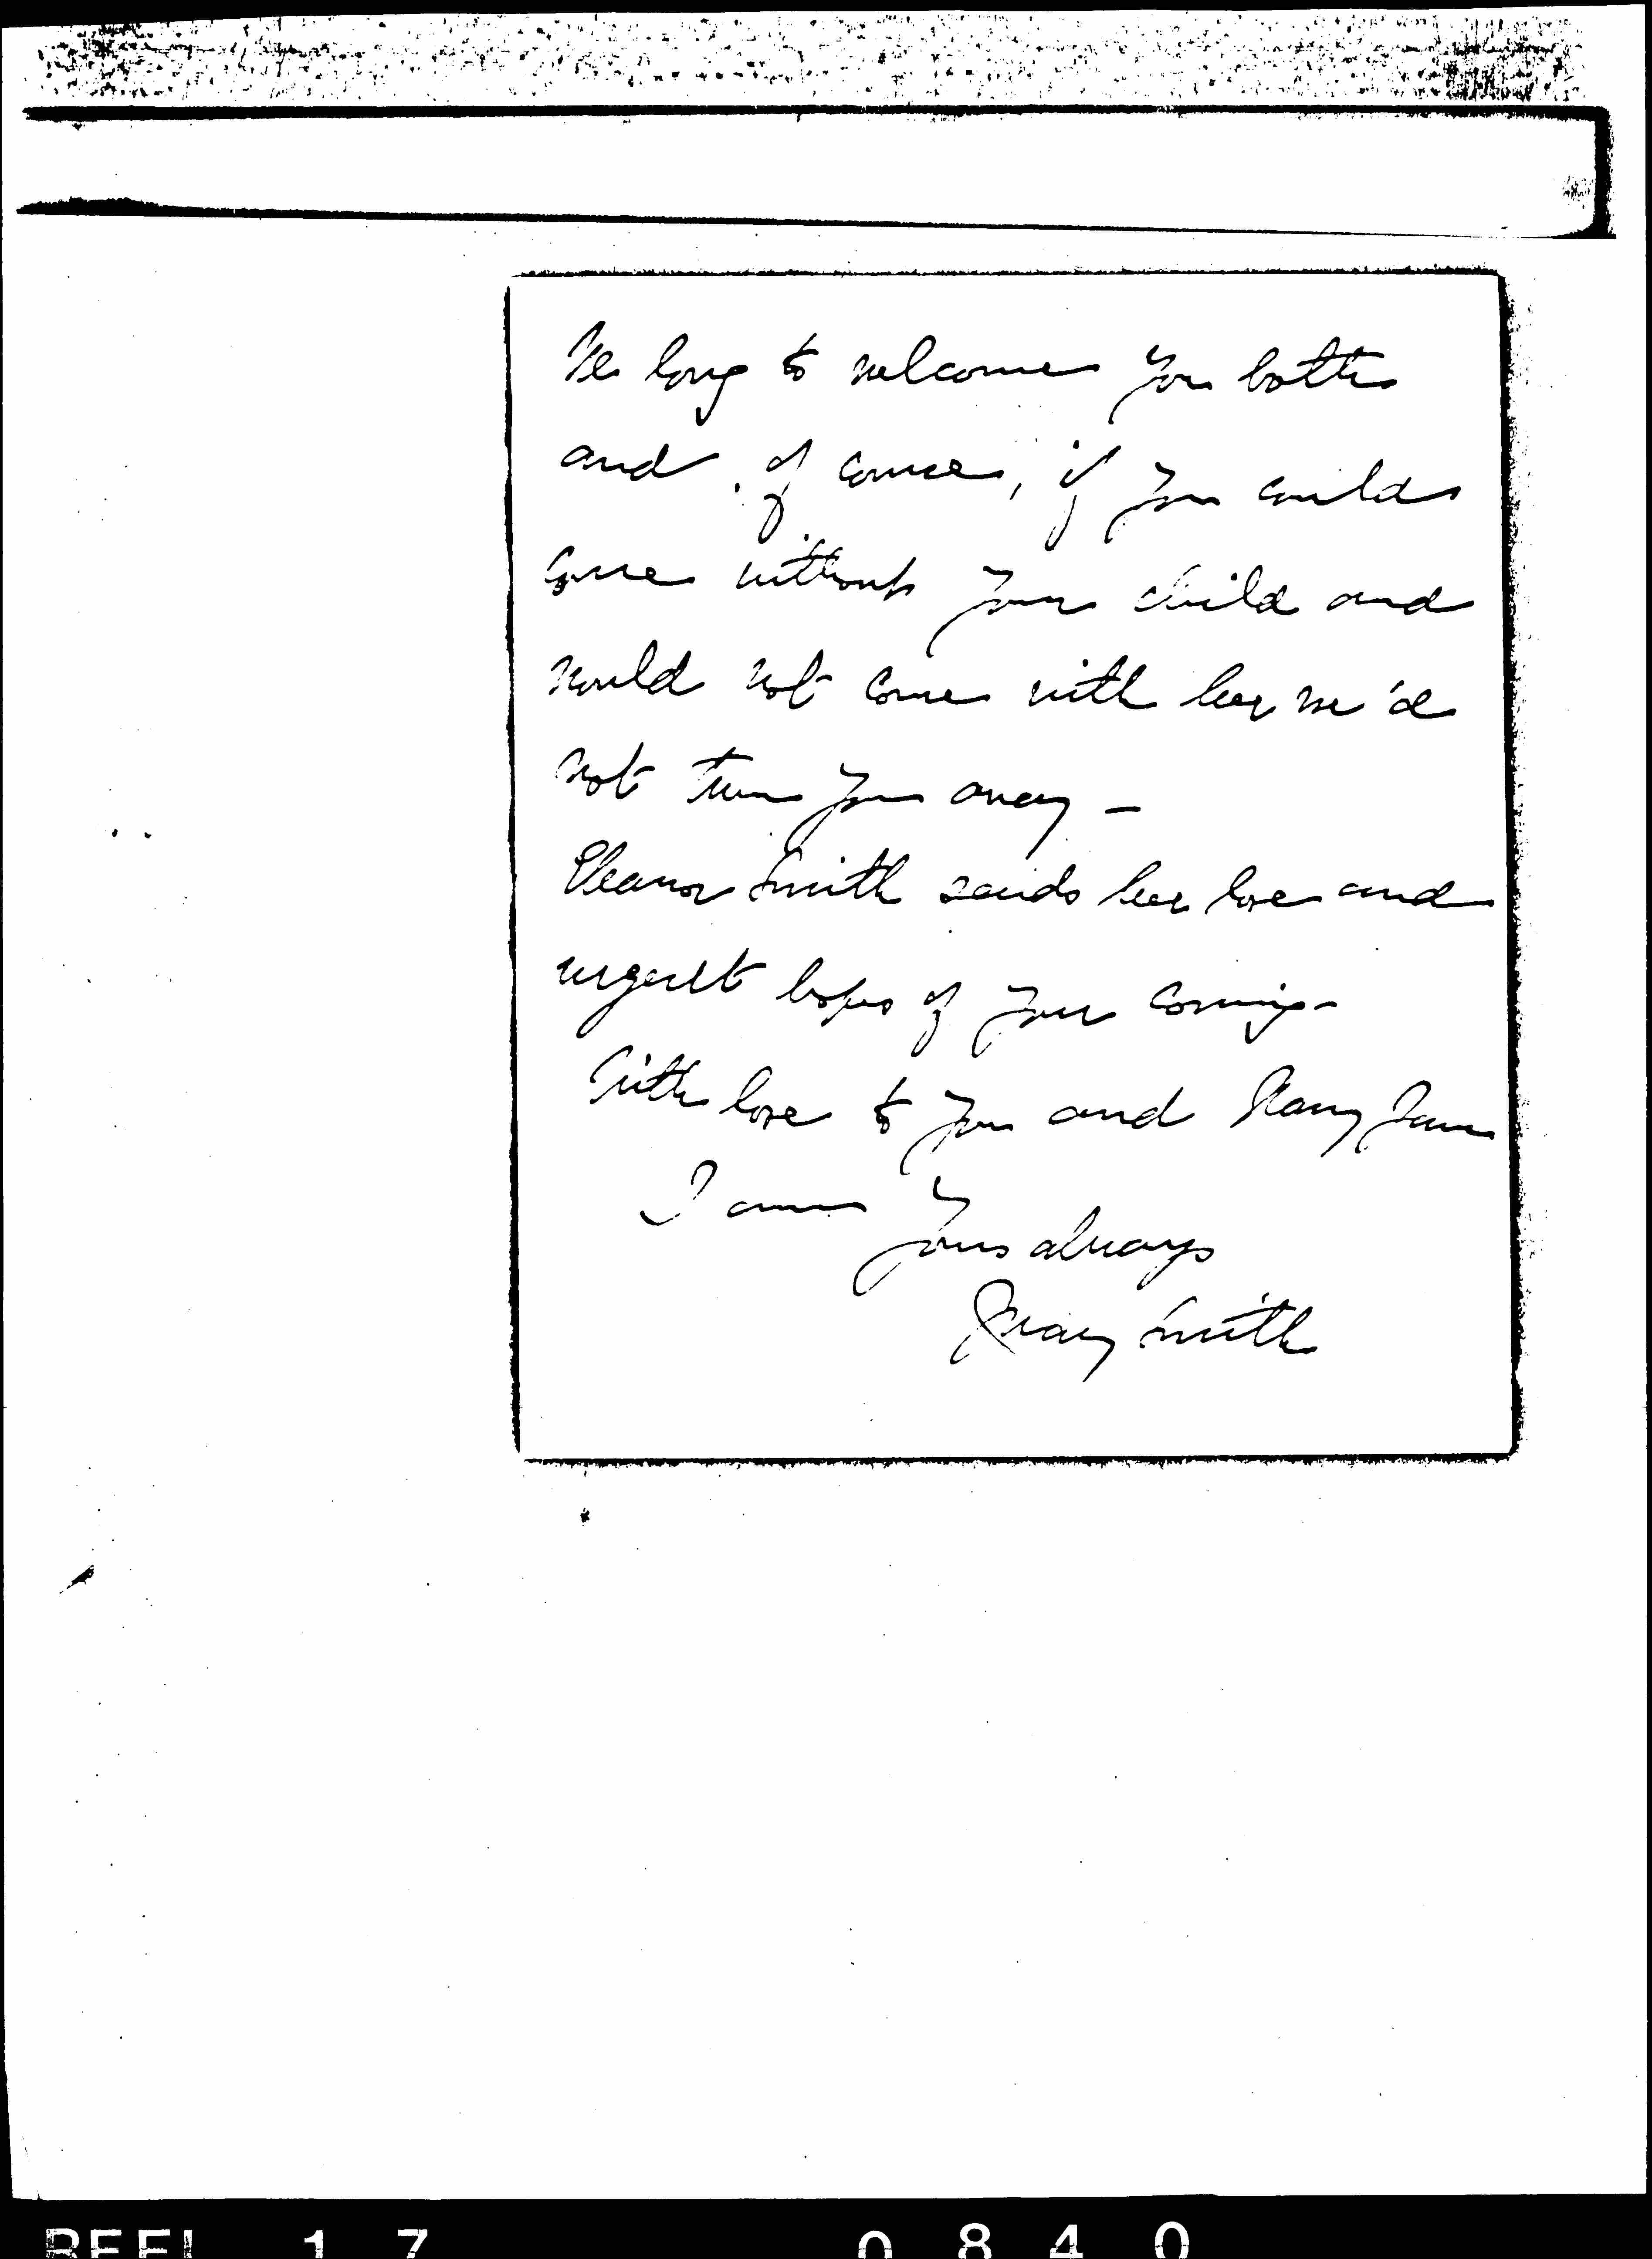 We long to welcome you both
and, of course, if you could
come without your child and
would not come with her we'd
not turn you away –
Eleanor Smith sends her love and
urgent hopes of your coming –
With love to you and Mary Jane
I am
Yours always
Mary Smith
REEL 17 0840